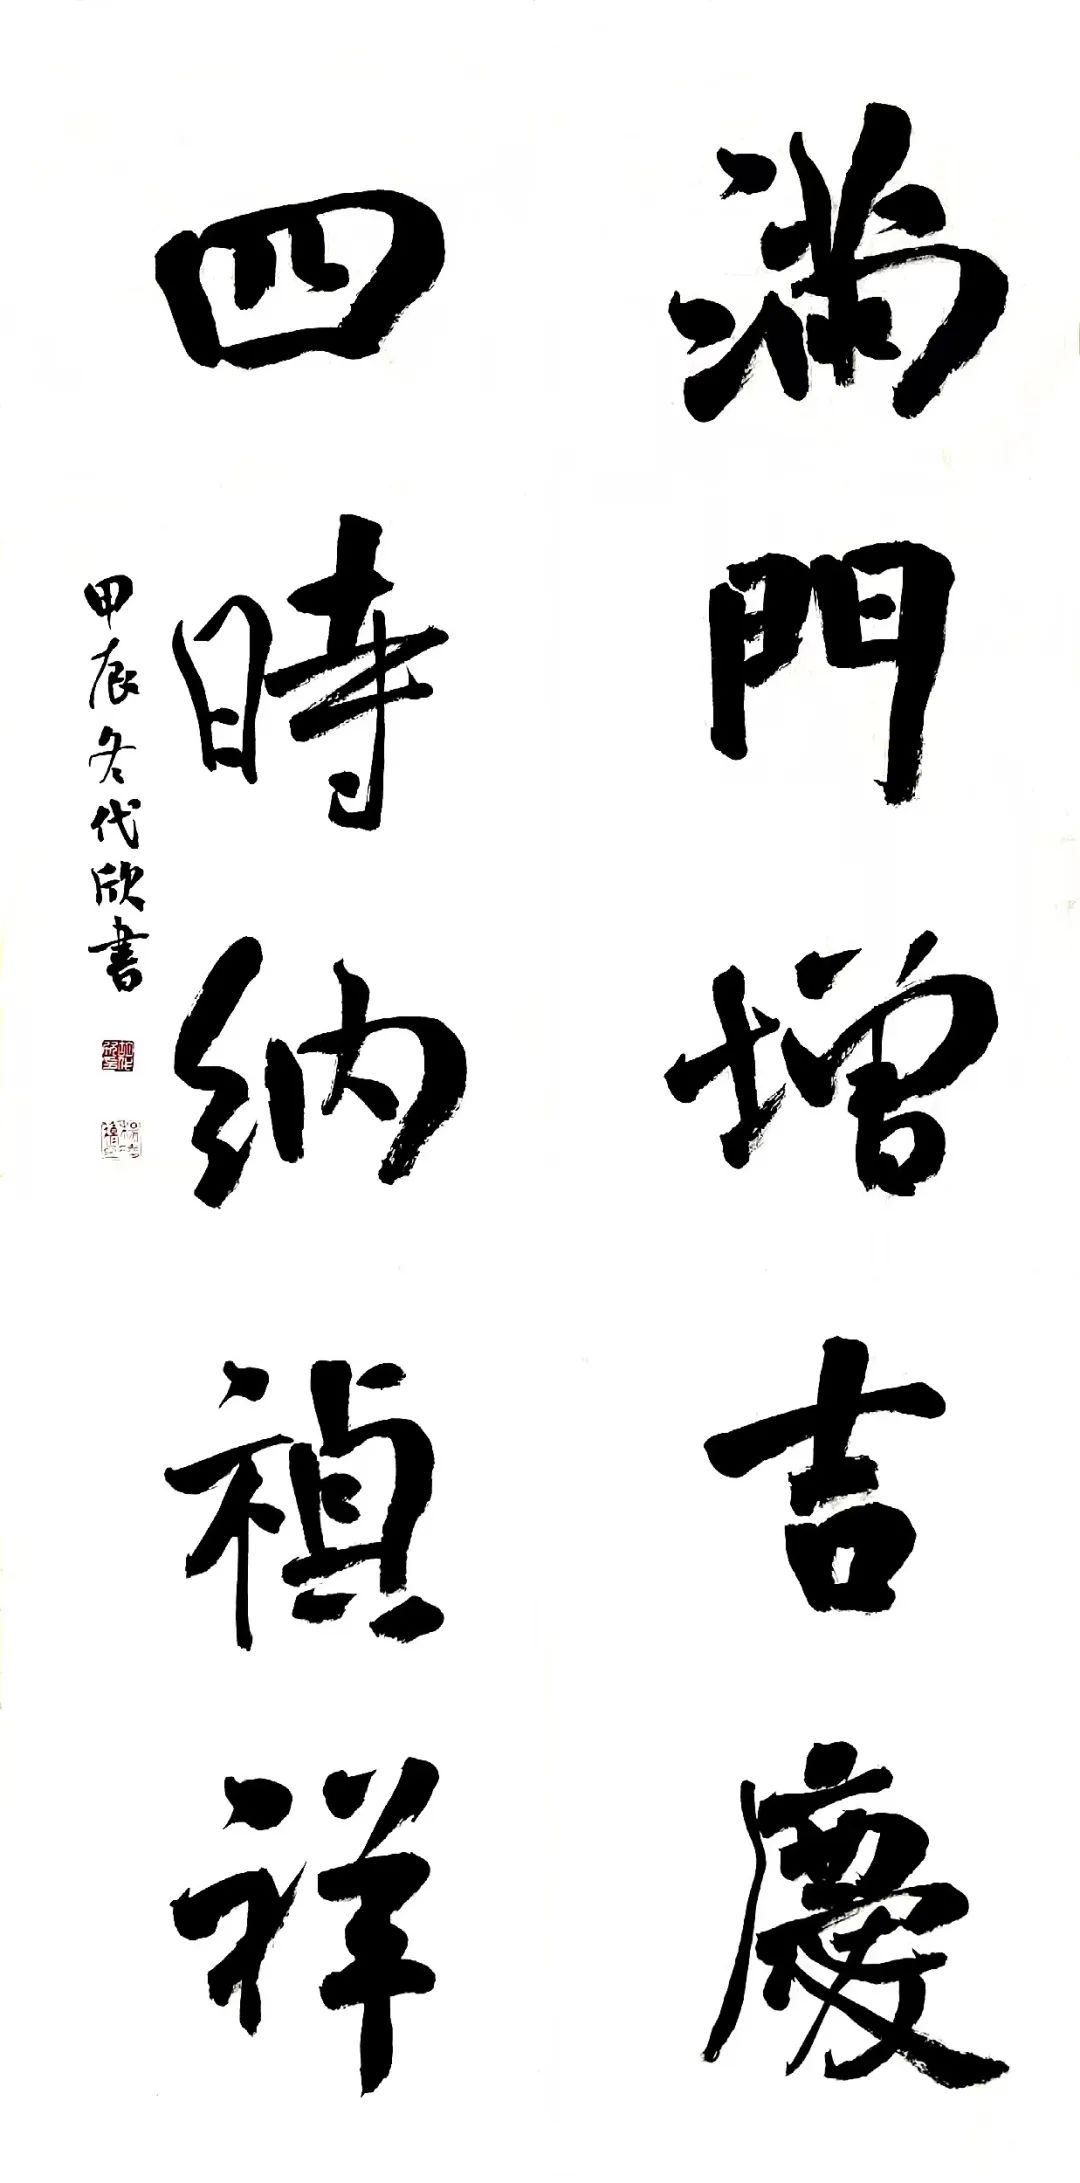 滿門增吉慶
四時納禎祥
甲辰冬代欣書